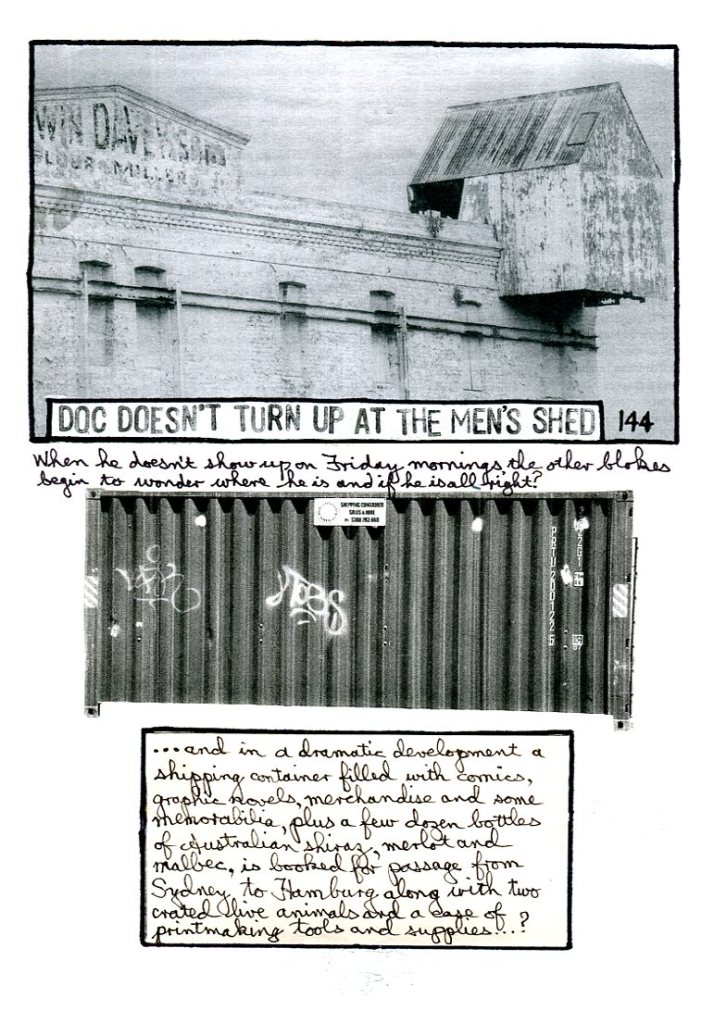 WIN DAVEY & SONS
FLOUR MILLERS
DOC DOESN'T TURN UP AT THE MEN'S SHED
144
When he doesn't show up on Friday mornings, the other blokes
begin to wonder where he is and if he is all right?
SHIPPING CONTAINER
SALES & HIRE
PRTU 200122 5
...and in a dramatic development a
shipping container filled with comics,
graphic novels, merchandise and some
memorabilia, plus a few dozen bottles
of Australian shiraz, merlot and
malbec, is booked for passage from
Sydney to Hamburg along with two
crated live animals and a case of
printmaking tools and supplies...?